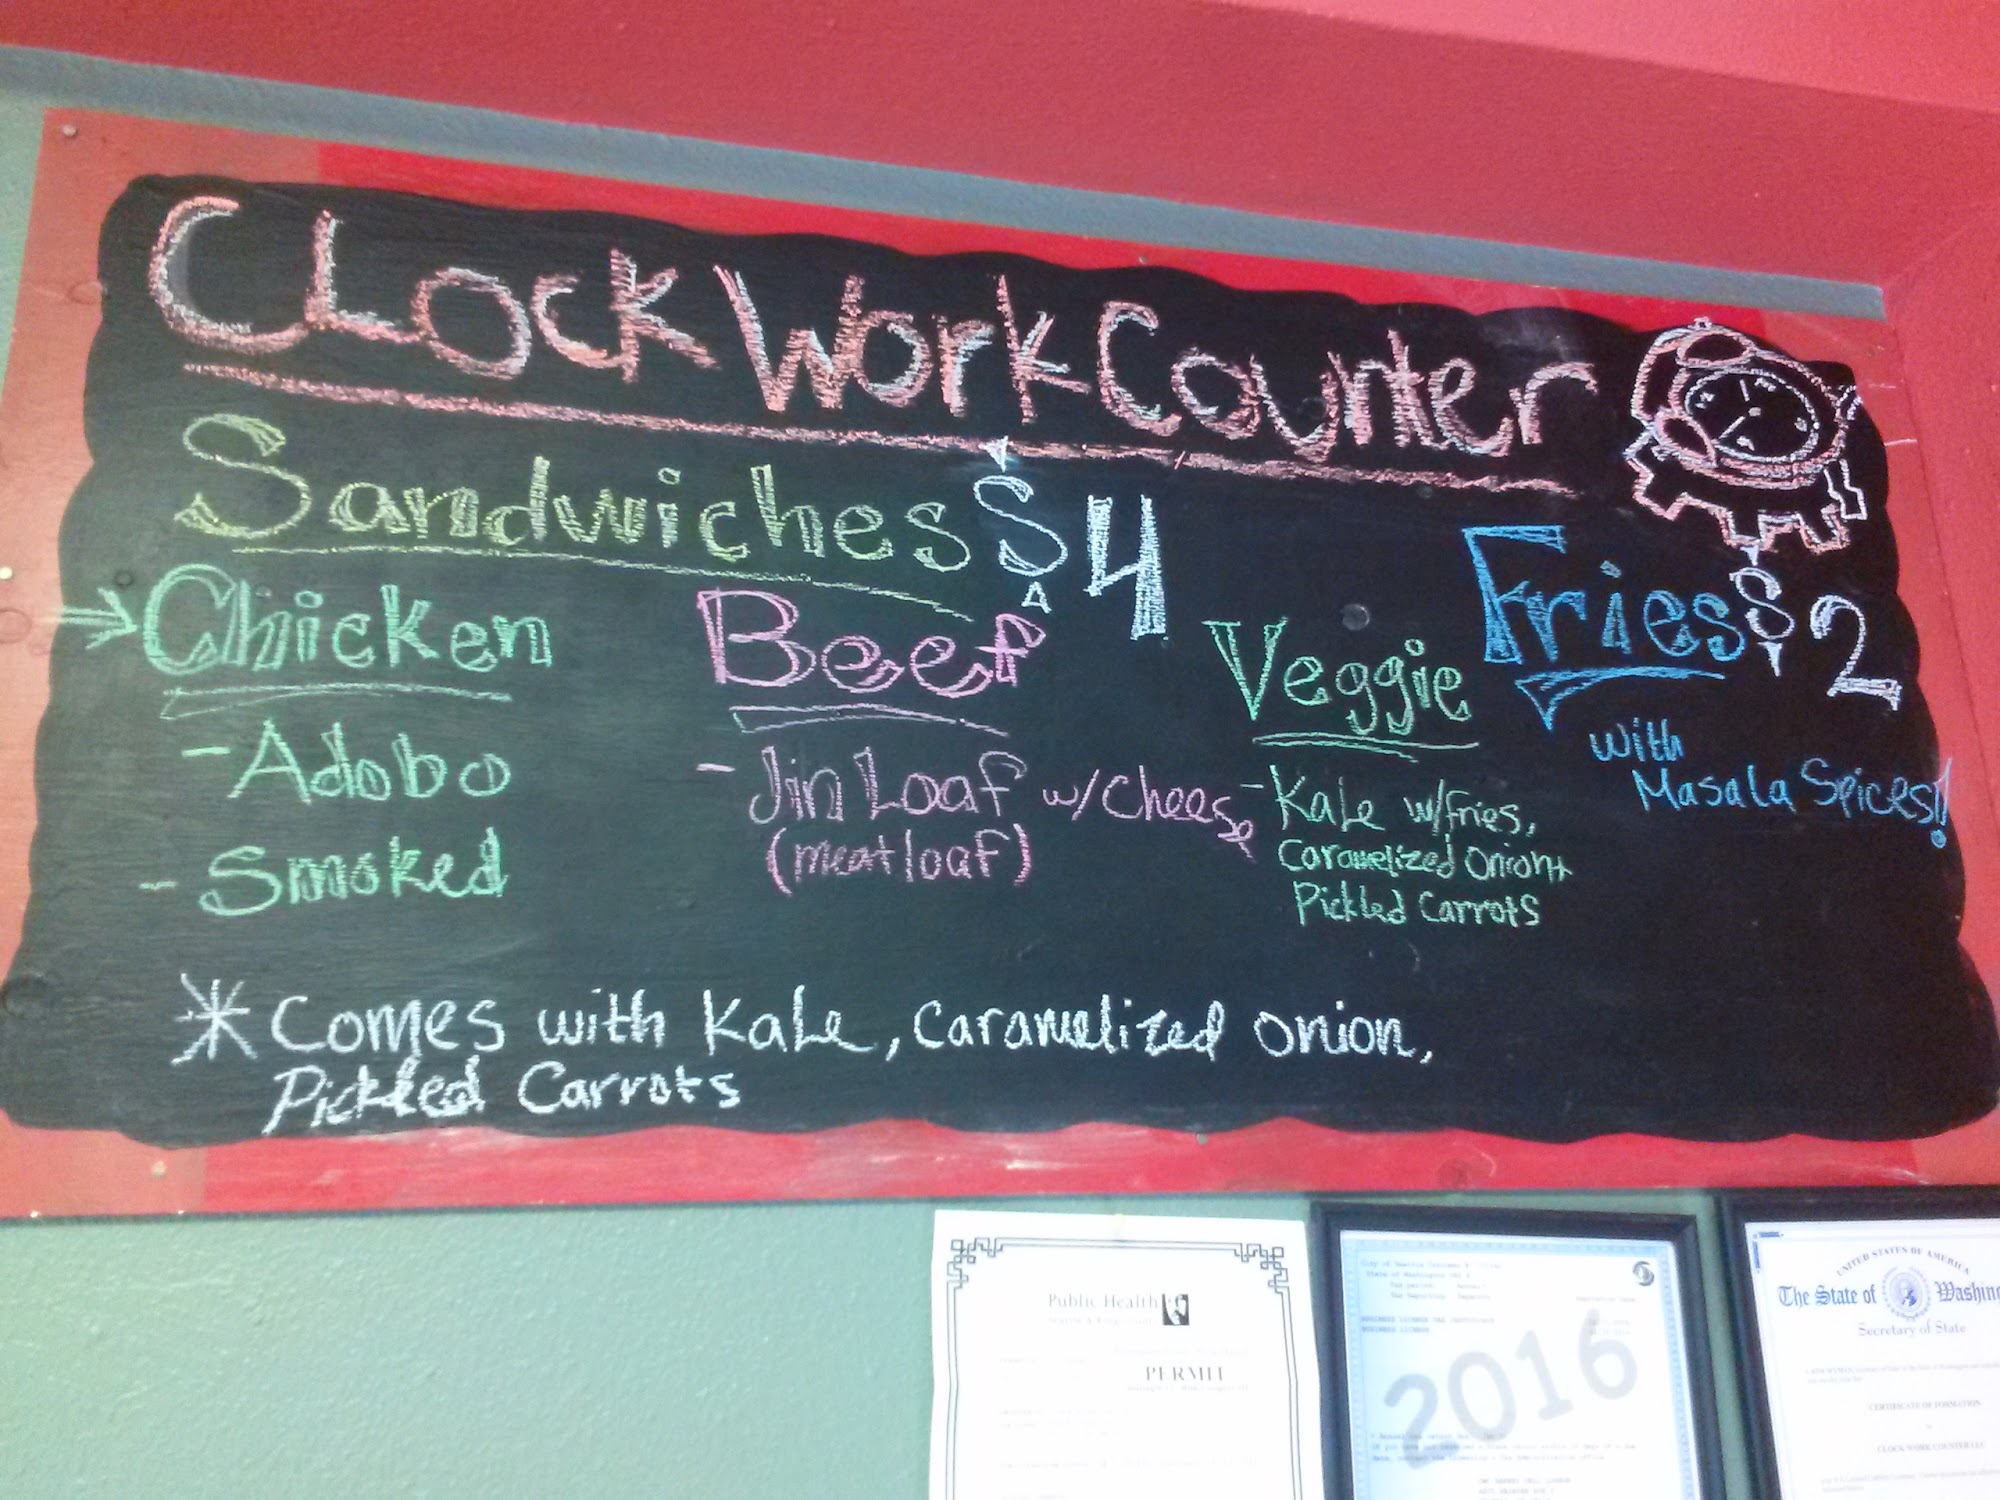 CLock Work Counter
Sandwiches $4
Fries $2
with
Masala Spices!!
Chicken
- Adobo
- Smoked
Beef
- Jin Loaf w/Cheese
(meatloaf)
Veggie
- Kale w/fries,
Caramelized Onion+
Pickled Carrots
* Comes with KaLe, Caramelized Onion,
Pickled Carrots
Public Health
PERMIT
2016
UNITED STATES OF AMERICA
The State of Washin
Secretary of State
CERTIFICATE OF FORMATION
CLOCK WORK COUNTER LLC